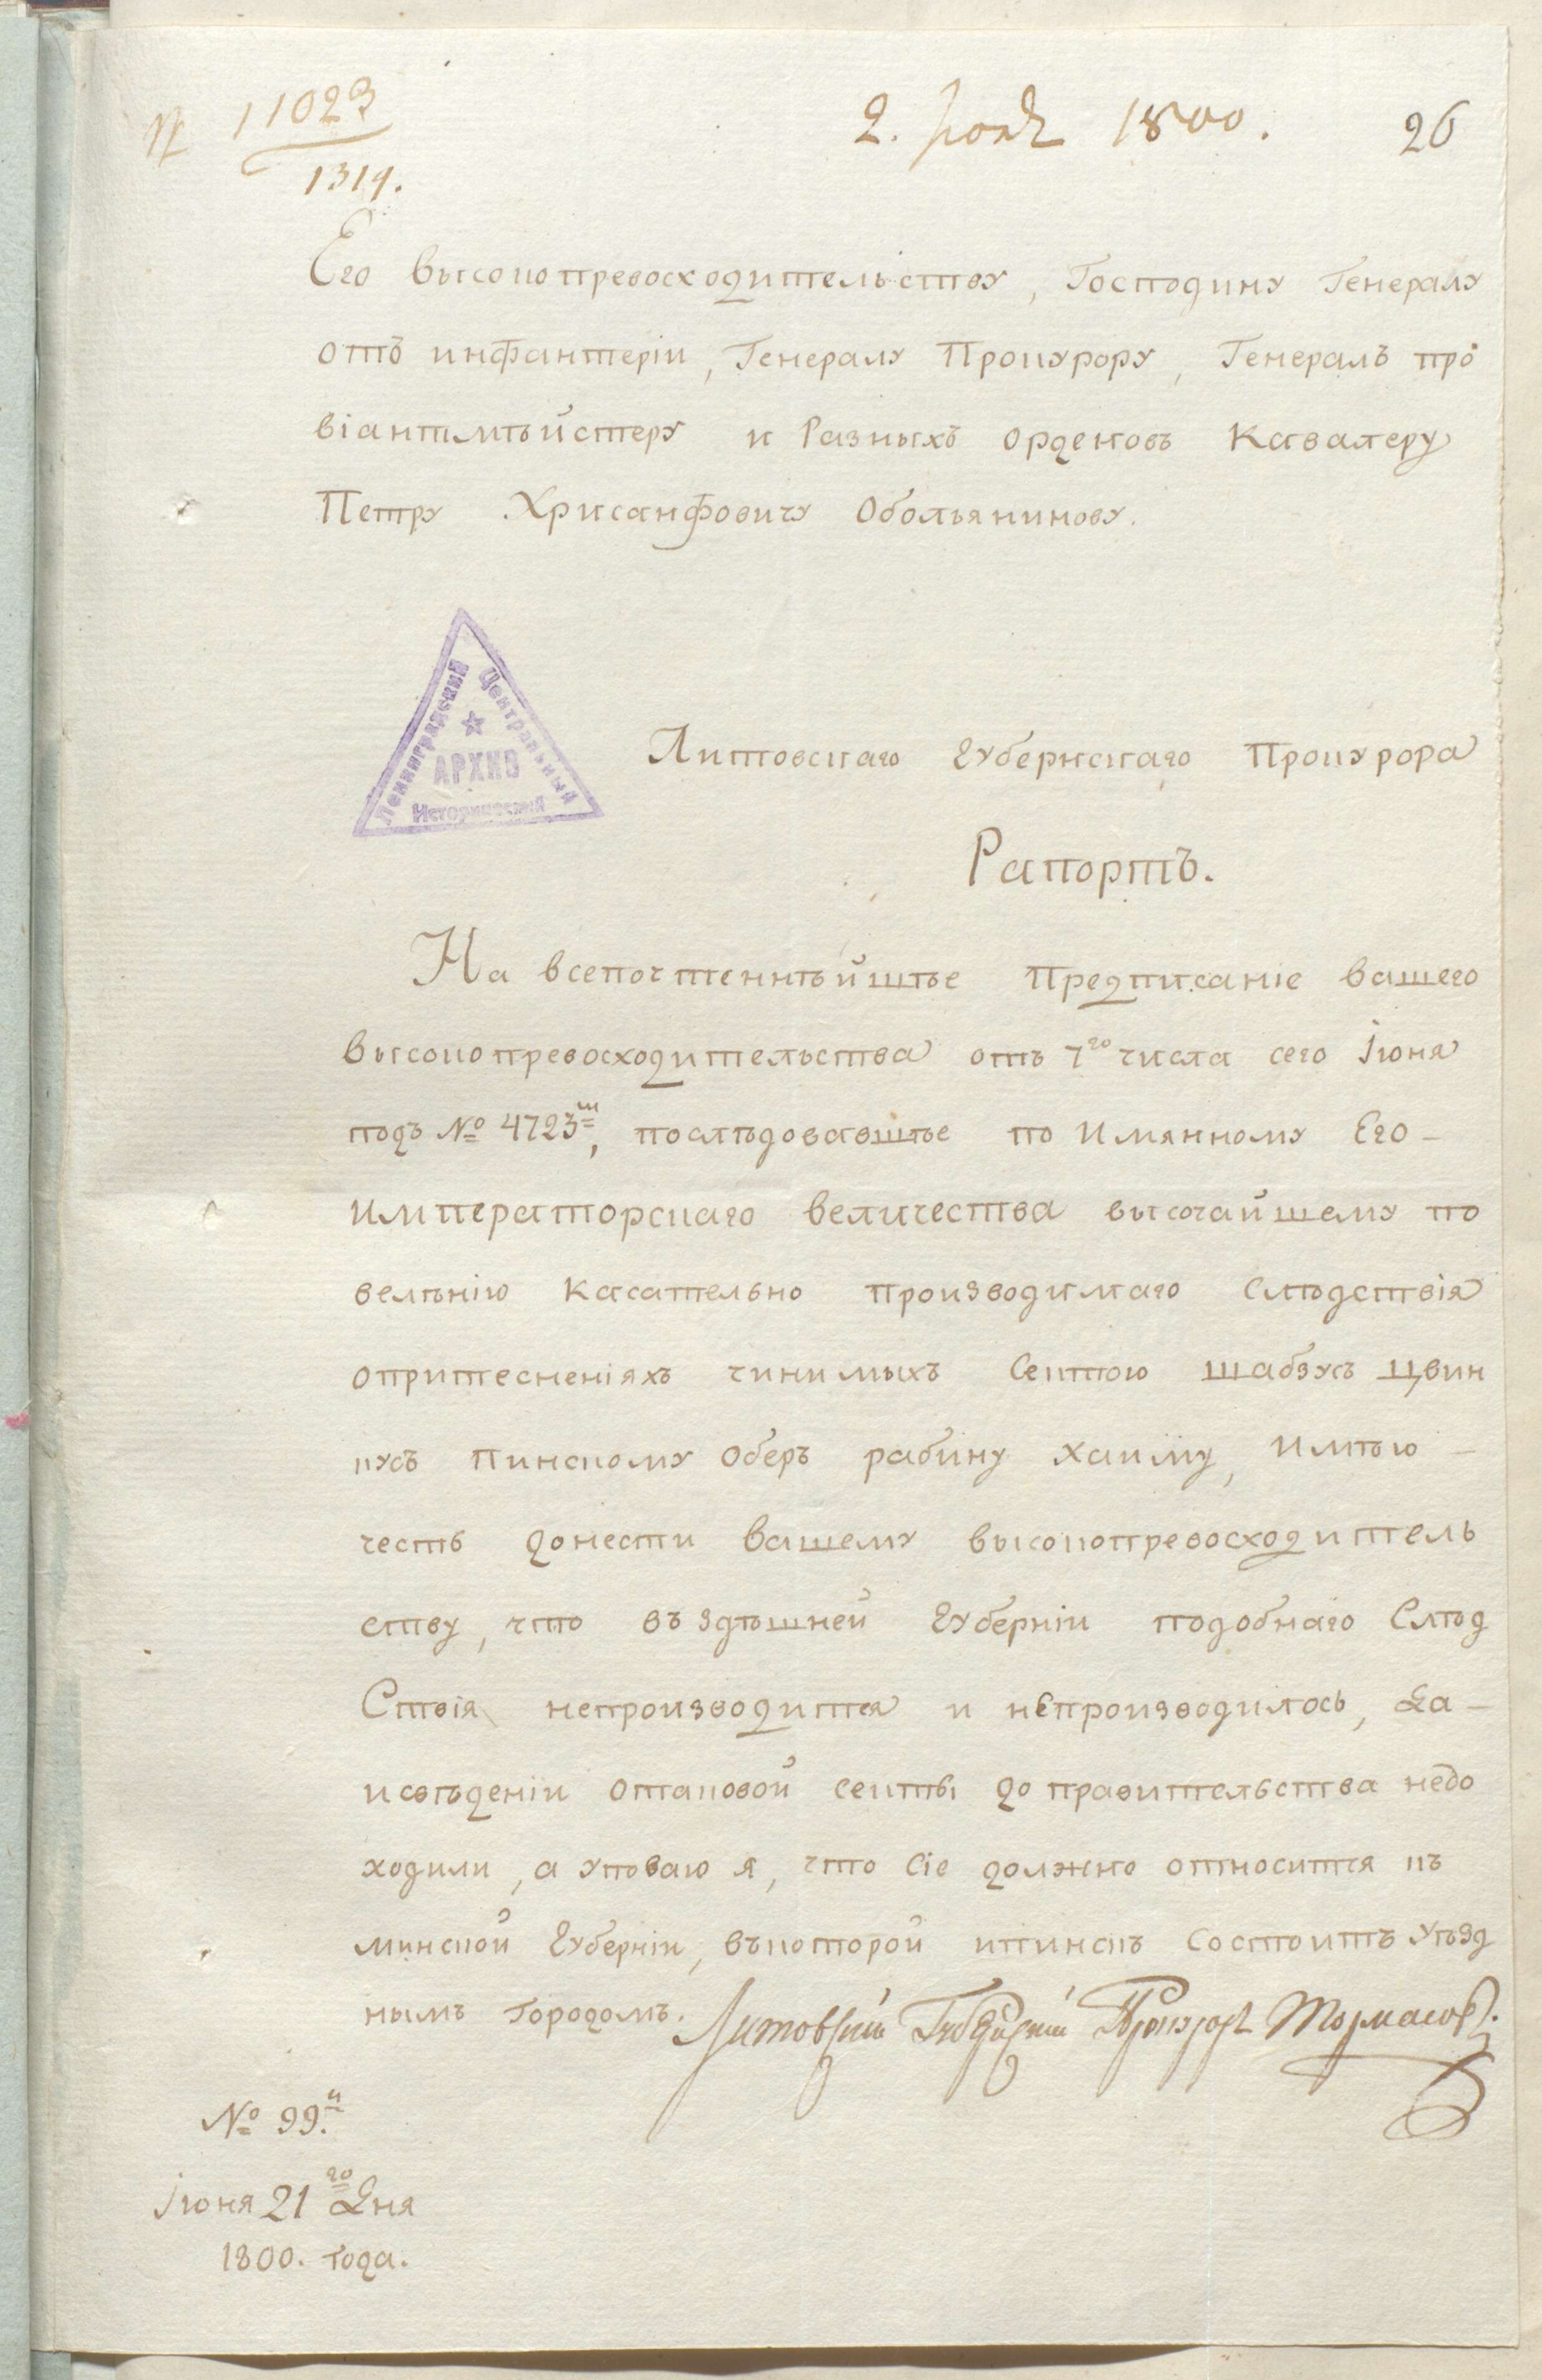 № 11023
2. Іюля 1800.
26
1314.
Его Высокопревосходительству, Господину Генералу
отъ инфантеріи, Генералу Прокурору, Генералъ про
віантмѣйстеру и Разныхъ орденовъ Кавалеру
Петру Хрисанфовичу Обольянинову.
Ленинградский Центральный
АРХИВ
Исторический
Литовскаго Губернскаго Прокурора
Рапортъ.
На всепочтеннѣйшѣе Предписаніе вашего
высокопревосходительства отъ 7го числа сего Іюня
подъ № 4723м, послѣдовавшѣе по Имянному Его-
императорскаго величества высочайшему по
велѣнію касательно производимаго Слѣдствія
опритесненіяхъ чинимыхъ Сектою шабзусъ цвин
кусъ Пинскому оберъ рабину хаиму, Имѣю-
честь донести вашему высокопревосходитель
ству, что въ здѣшней Губерніи подобнаго Слѣд
Ствія непроизводится и непроизводилось, да-
исвѣденіи отаковой секты до правительства недо
ходили, а уповаю я, что Сіе должно относится къ
минской Губерніи, вькоторой ипинскъ состоитъ Уѣзд
нымъ городомъ. Литовскій Губернскій Прокуроръ Тормасовъ.
№ 99.й
Іюня 21го Дня
1800. года.